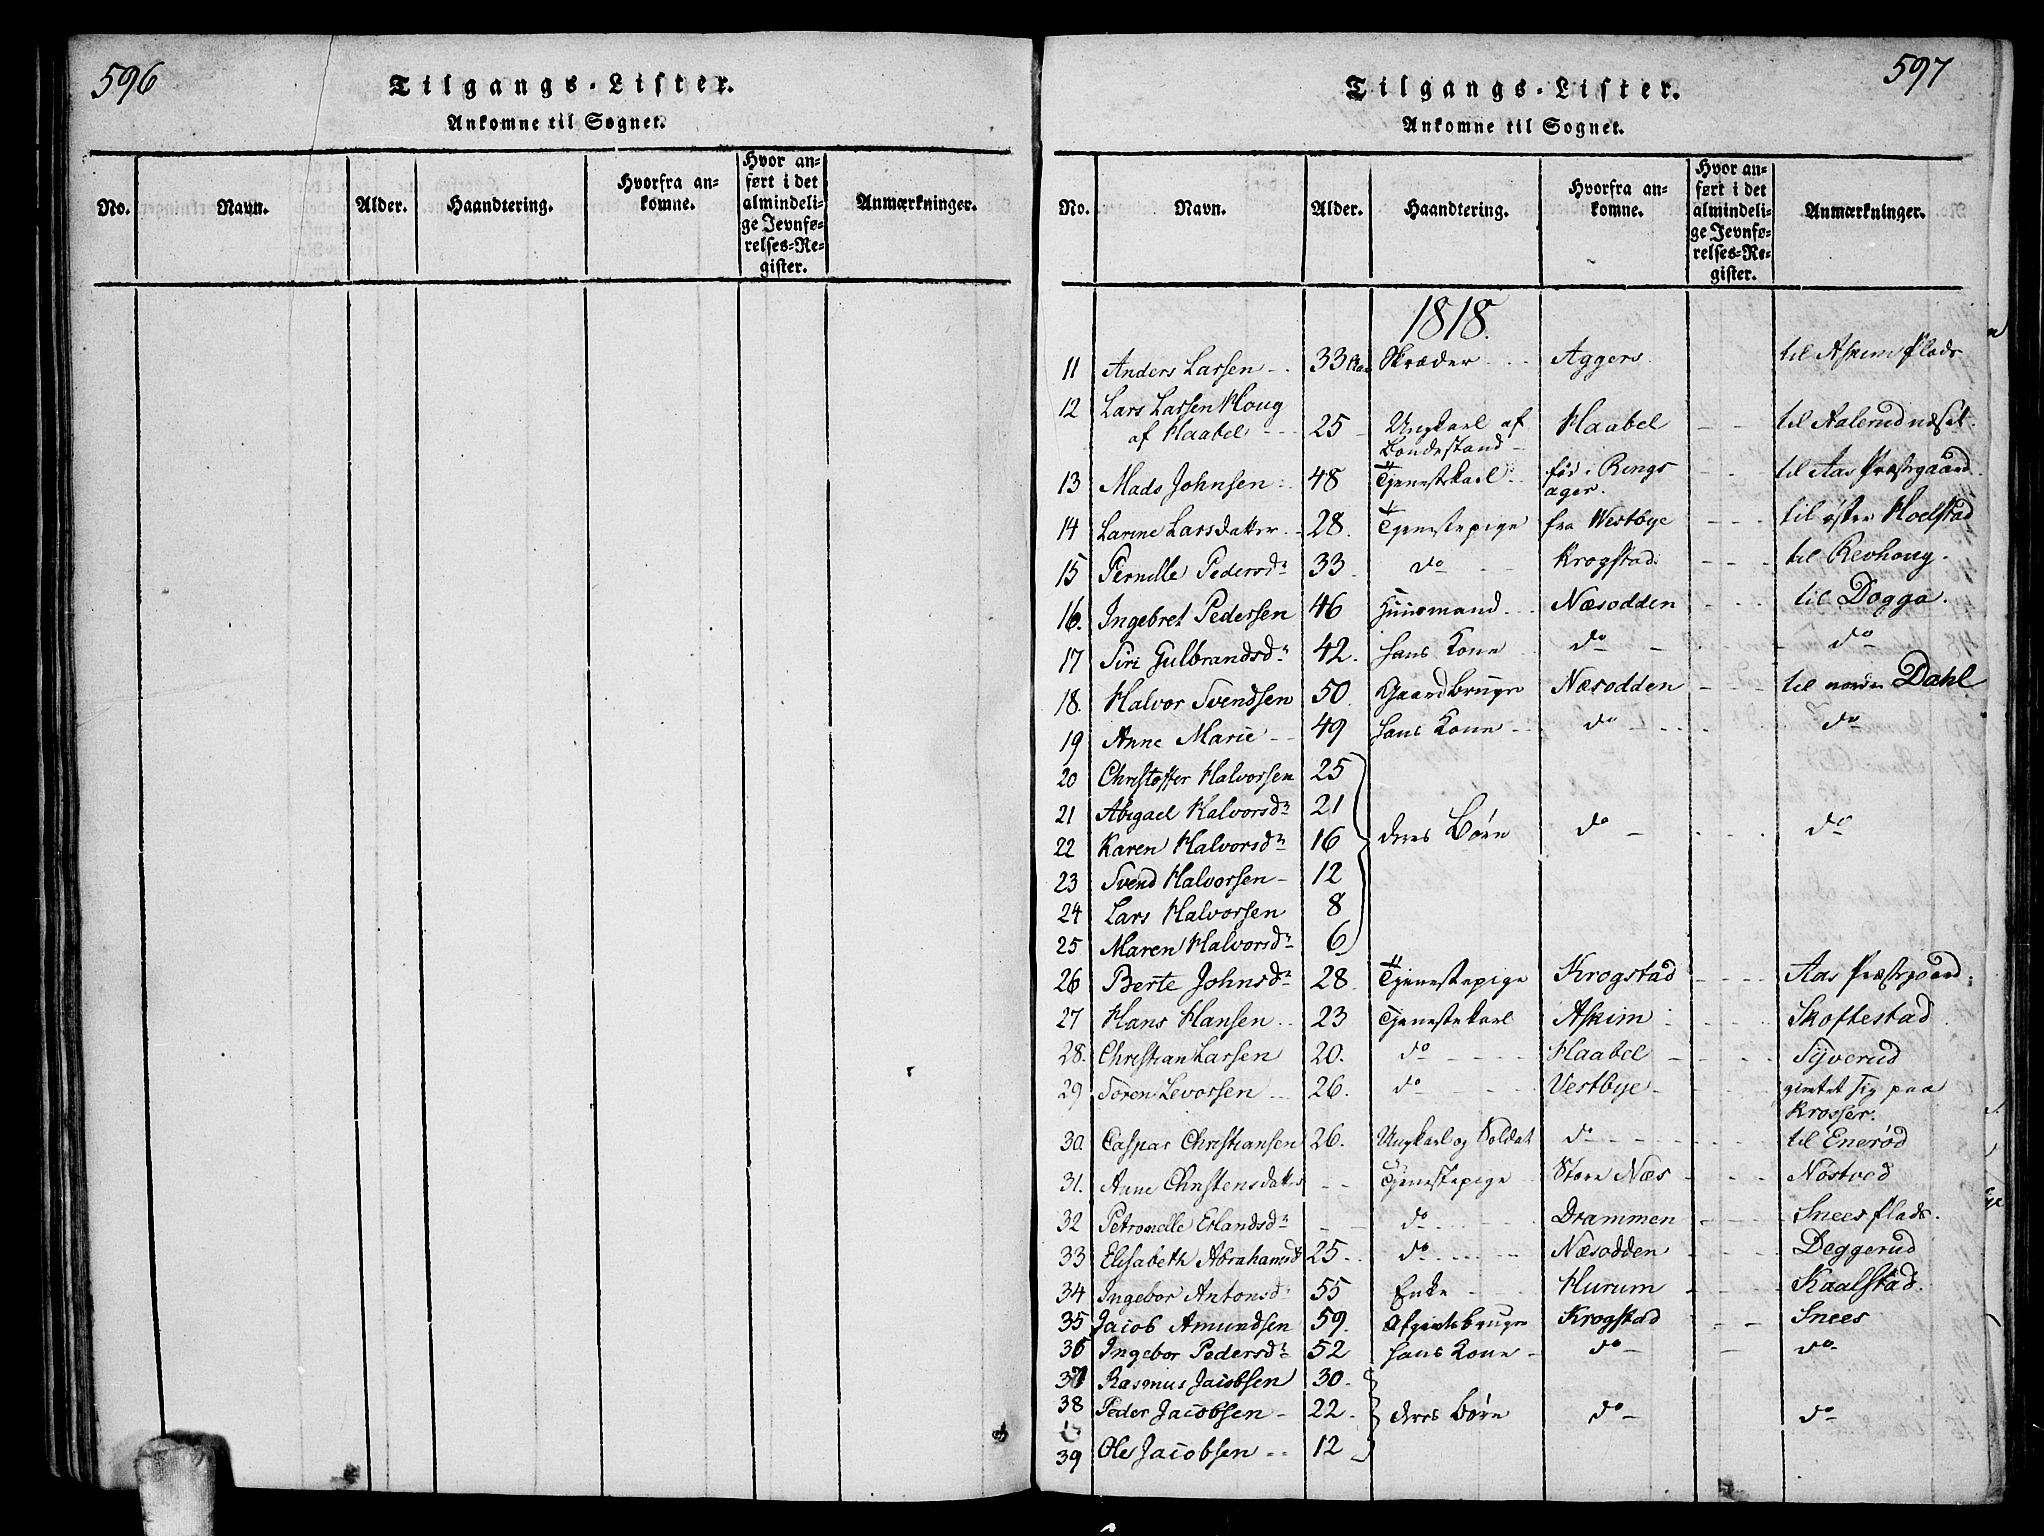 596
Tilgangs-Lister.
Ankomne til Sognet.
No. Navn. Alder. Haandtering. Hvorfra an= komne. Hvor an= ført i det almindeli= ge Jevnfø= relses=Re= gister. Anmærkninger.
597
Tilgangs-Lister.
Ankomne til Sognet.
No. Navn. Alder. Haandtering. Hvorfra an= komne. Hvor an= ført i det almindeli= ge Jevnfø= relses=Re= gister. Anmærkninger.
1818.
11 Anders Larsen 33 Skræder Aggers til Askim Plads
12 Lars Larsen Houg
af Haabel 25 Ungkarl af Bondestand Haabel til Aalerudnæset.
13 Mads Johnsen 48 Tjenestekarl fød. Rings ager. til Aas Præstegaard
14 Larine Larsdatter 28. Tjenestepige fra Westbye til øster Holstad
15 Pernille Pedersdr 33 do Krogstad til Revhoug.
16. Ingebret Pedersen 46 Huusmand Næsodden til Dogga.
17 Siri Gulbrandsdr 42. hans Kone do do
18. Halvor Svendsen 50. Gaardbruger Næsodden til nordre Dahl
19 Anne Marie 49 hans Kone do do
20 Christoffer Halvorsen 25
21 Abigael Halvorsdr 21
22 Karen Halvorsdr 16 deres Børn do do
23 Svend Halvorsen 12
24 Lars Halvorsen 8
25 Maren Halvorsdr 6
26 Berte Johnsdr 28. Tjenestepige Krogstad Aas Præstegaard.
27 Hans Hansen 23 Tjenestekarl Askim Skoftestad
28. Christian Larsen 20. do Haabel Syverud
29 Søren Levorsen 26. do Vestbye giftet sig paa
Krosser.
30. Caspar Christiansen 26. Ungkarl og Soldat do til Enerød
31. Anne Christensdatter Tjenestepige Store Næs Nøstved
32 Petronelle Erlandsdr do Drammen Snees Plads.
33 Elisabeth Abrahamsdr 25. do Næsodden Deggerud
34 Ingebor Antonsd 55 Enke Hurum Kaalstad.
35 Jacob Amundsen 59. Afgivtsbruger Krogstad Snees
36 Ingebor Pedersdr 52 hans Kone do do
37 Rasmus Jacobsen 30.
38 Peder Jacobsen 22. deres Børn do do
39 Ole Jacobsen 12